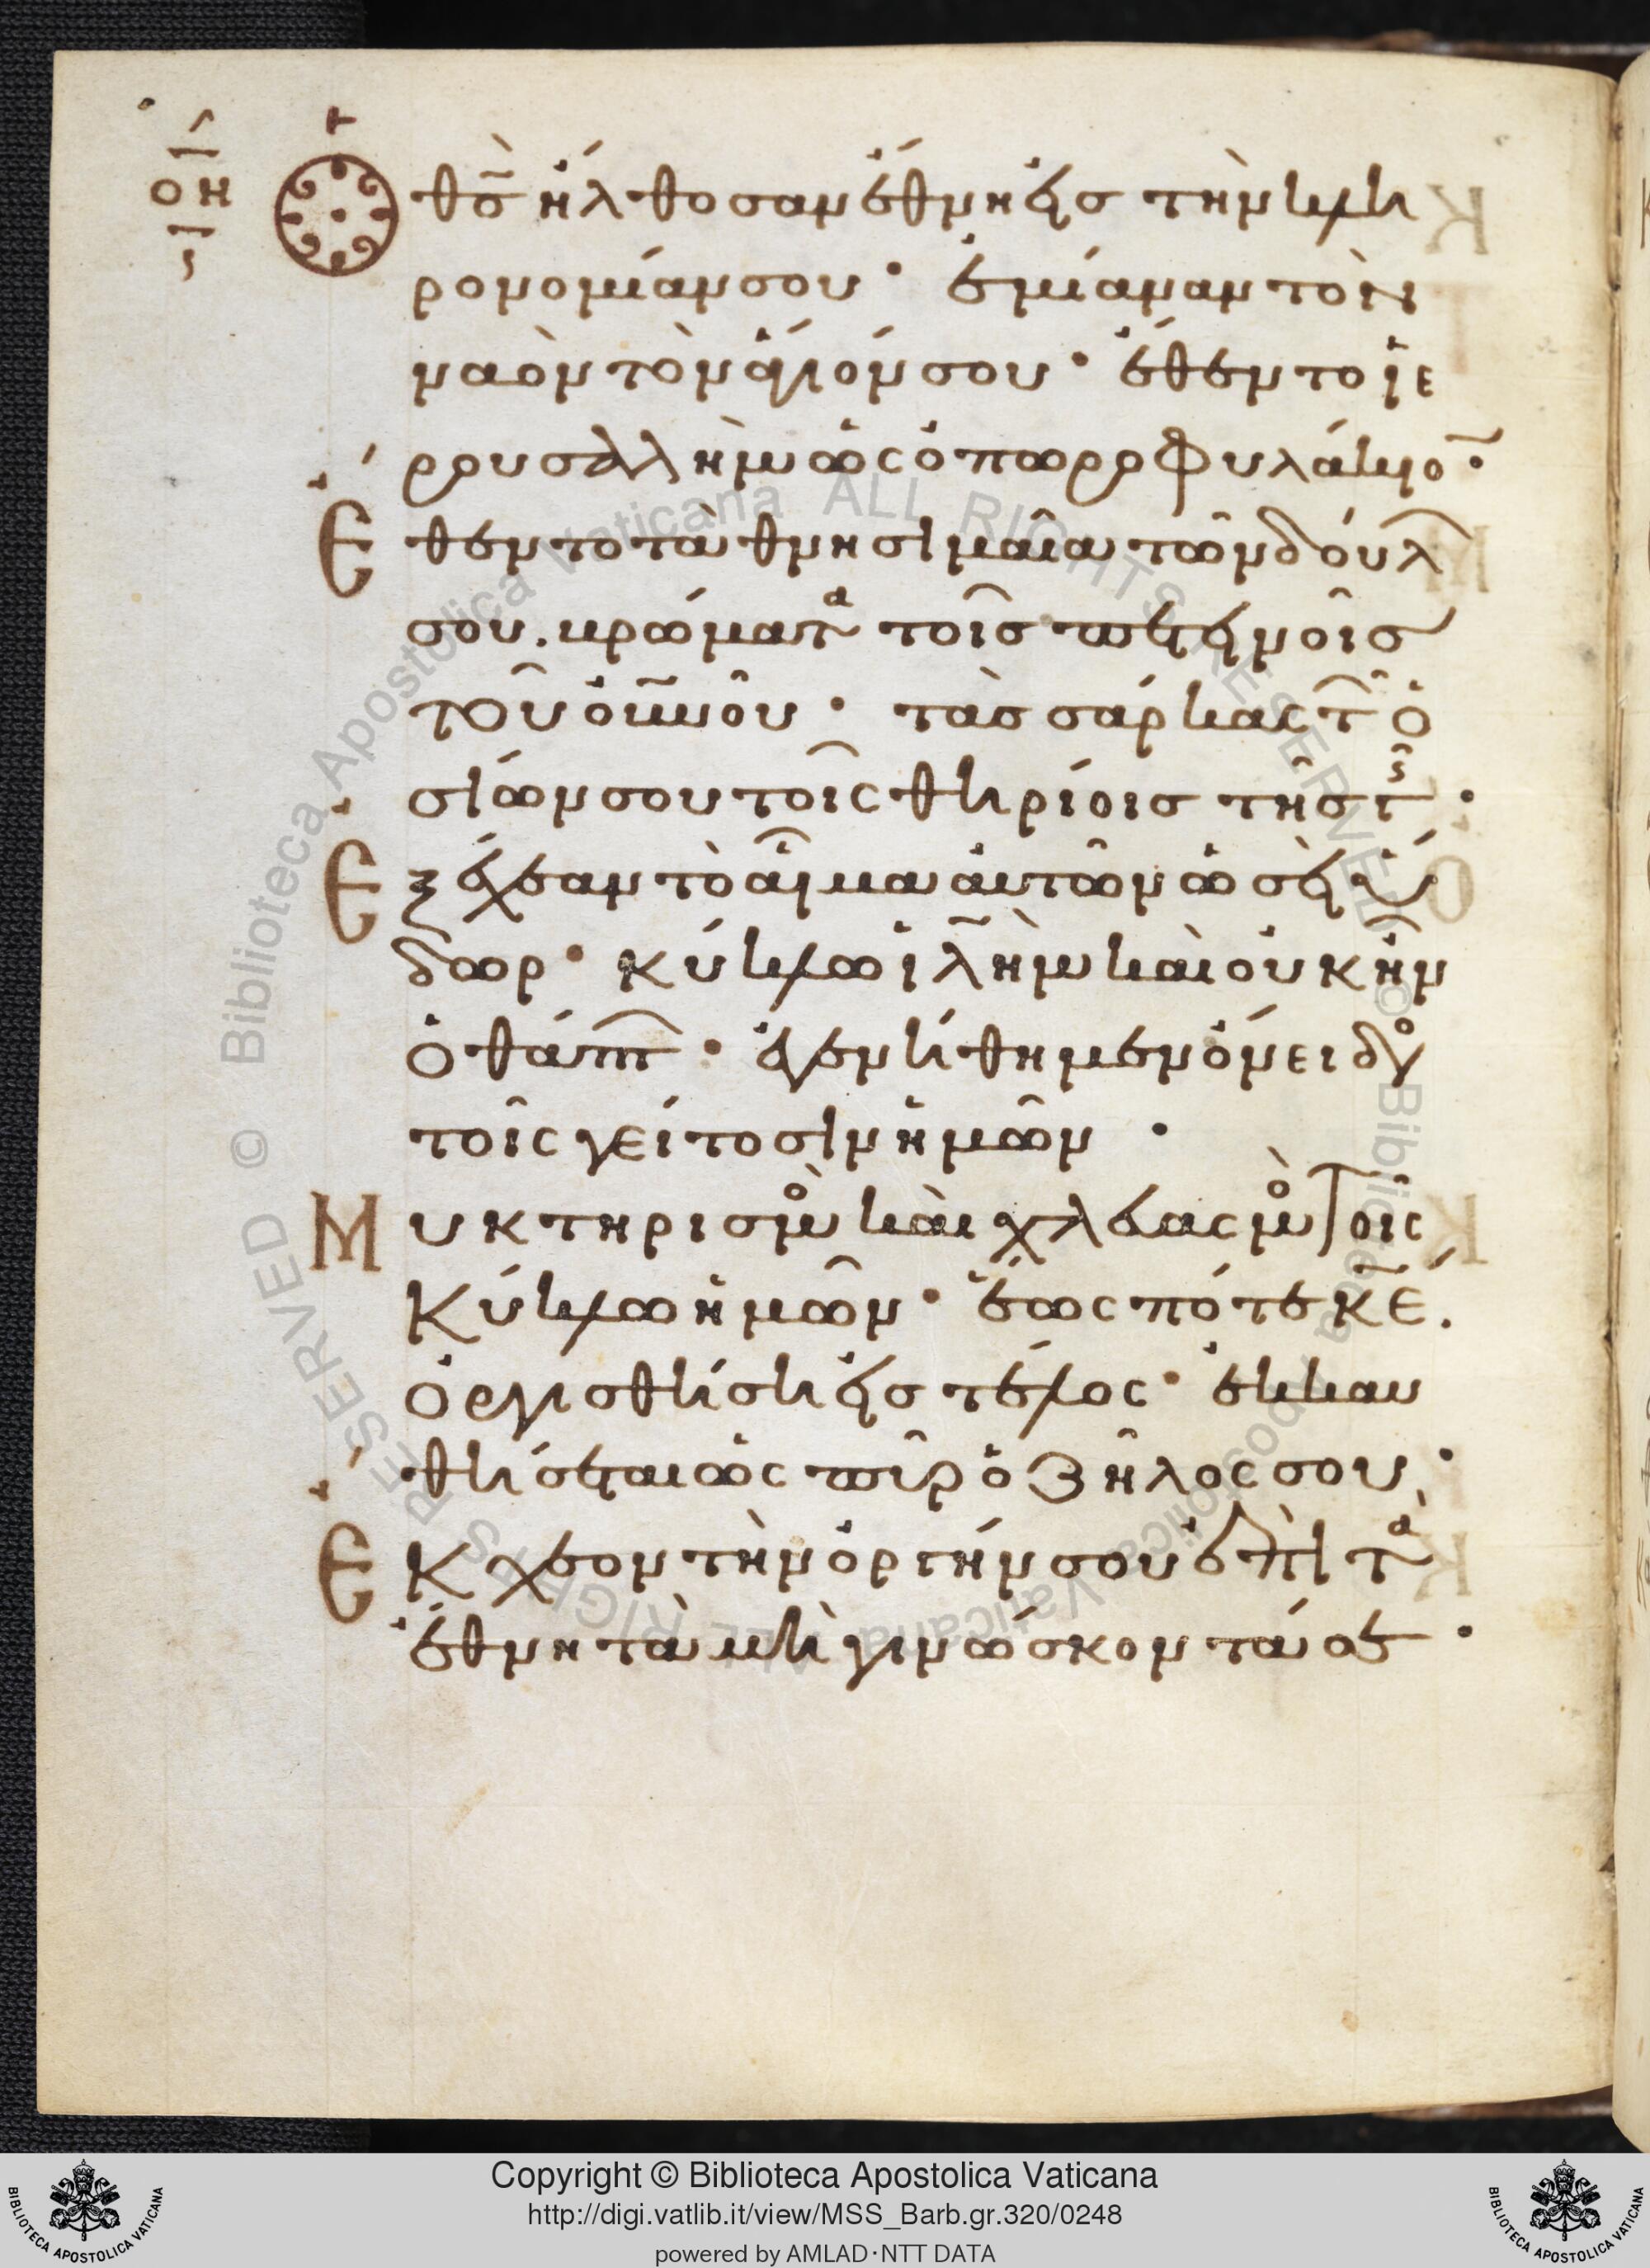 οη
Ὁ θς̄ ἤλθοσαν ἔθνη εἰς τὴν κλη
ρονομίαν σου· ἐμίαναν τὸν
ναὸν τὸν ἅγιόν σου· ἔθεντο ἱε
ρουσαλὴμ ὡς ὀπωροφυλάκιο̄·
Ἔθεντο τὰ θνησιμαῖα τῶν δούλ
σου. βρώματα τοῖς πετεινοῖς
τοῦ οὐνοῦ· τὰς σάρκας τ ὁ
σίων σου τοῖς θηρίοις τῆς γῆς·
Ἐξέχεαν τὸ αἷμα αὐτῶν ὡσεὶ ὕ
δωρ· κύκλω ἰλ̄ημ καὶ οὐκ ἦν
ὁ θάπτ· ἐγενήθημεν ὄνειδο
τοῖς γείτοσιν ἡμῶν·
Μυκτηρισμὸ καὶ χλευασμὸ τοῖς
κύκλω ἡμῶν· ἕως πότε κ̄ε.
ὀργισθήση εἰς τέλος· ἐκκαυ
θήσεται ὡς πῦρ ὁ ζῆλος σου·
Ἔκχεον τὴν ὀργήν σου ἐπὶ τὰ
ἔθνη τὰ μὴ γινώσκοντά σε·
Copyright © Biblioteca Apostolica Vaticana
http://digi.vatlib.it/view/MSS_Barb.gr.320/0248
powered by AMLAD·NTT DATA
BIBLIOTECA APOSTOLICA VATICANA
BIBLIOTECA APOSTOLICA VATICANA
© Biblioteca Apostolica Vaticana ALL RIGHTS RESERVED
© Biblioteca Apostolica Vaticana ALL RIGHTS RESERVED